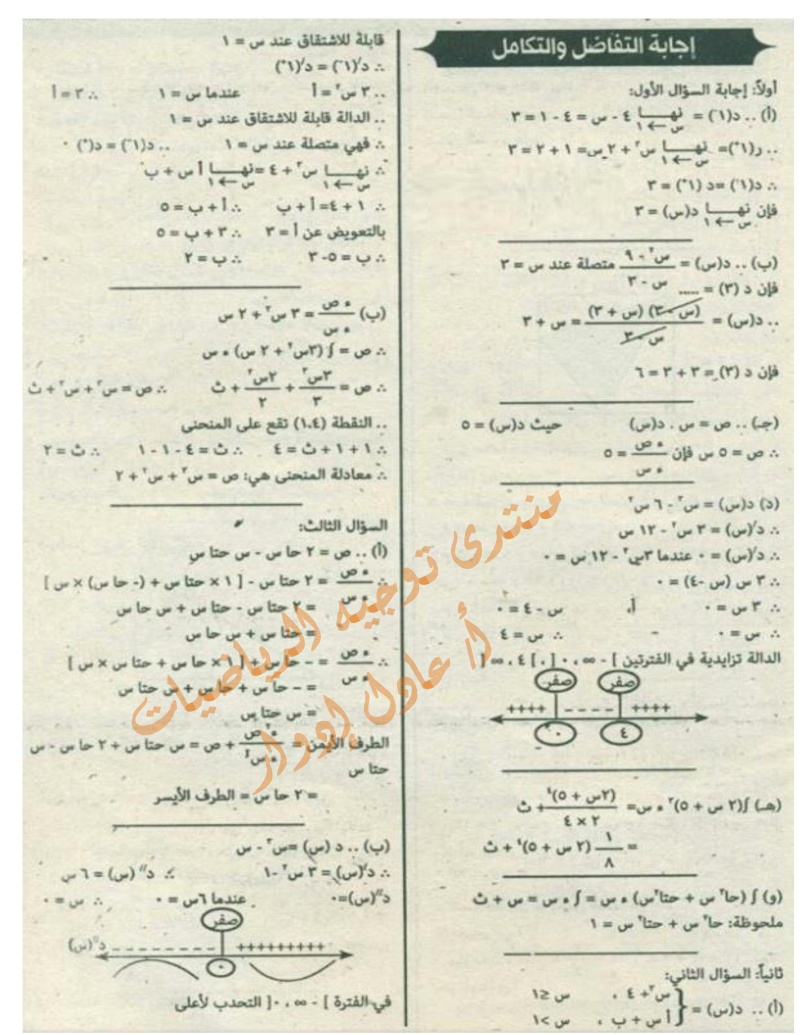 إجابة التفاضل والتكامل
أولاً: إجابة السؤال الأول:
(أ) ∵ د(١⁻) = نهـــا س←١ ٤ - س = ٤ - ١ = ٣
∵ ر(١⁺) = نهـــا س←١ س² + ٢ س = ١ + ٢ = ٣
∴ د(١⁻) = د (١⁺) = ٣
فإن نهـــا س←١ د(س) = ٣
(ب) ∵ د(س) = (س² - ٩)/(س - ٣) متصلة عند س = ٣
فإن د (٣) = .....
∵ د(س) = (س - ٣) (س + ٣)/(س - ٣) = س + ٣
فإن د (٣) = ٣ + ٣ = ٦
(جـ) ∵ ص = س . د(س) حيث د(س) = ٥
∴ ص = ٥ س فإن ء ص/ء س = ٥
(د) د(س) = س³ - ٦ س²
∴ د/(س) = ٣ س² - ١٢ س
∴ د/(س) = ٠ عندما ٣س² - ١٢ س = ٠
∴ ٣ س (س - ٤) = ٠
∴ ٣ س = ٠ أ، س - ٤ = ٠
∴ س = ٠ ∴ س = ٤
الدالة تزايدية في الفترتين ] - ∞ ، ٠ [ ، ] ٤ ، ∞ [
صفر صفر
++++ - - - - ++++
٠ ٤
(هـ) ∫(٢ س + ٥)³ ء س = (٢س + ٥)⁴/(٢ × ٤) + ث
= ١/٨ (٢ س + ٥)⁴ + ث
(و) ∫ (حا² س + حتا² س) ء س = ∫ ء س = س + ث
ملحوظة: حا² س + حتا² س = ١
ثانياً: السؤال الثاني:
(أ) ∵ د(س) = { س³ + ٤ ، س ≤ ١
أ س + ب ، س > ١
قابلة للاشتقاق عند س = ١
∴ د/(١⁻) = د/(١⁺)
∵ ٣ س² = أ عندما س = ١ ∴ ٣ = أ
∵ الدالة قابلة للاشتقاق عند س = ١
∴ فهي متصلة عند س = ١ ∵ د(١⁻) = د(⁺)
∴ نهـــا س←١ س³ + ٤ = نهـــا س←١ أ س + ب
∴ ١ + ٤ = أ + ب ∴ أ + ب = ٥
بالتعويض عن أ = ٣ ∴ ٣ + ب = ٥
∴ ب = ٥ - ٣ ∴ ب = ٢
(ب) ء ص/ء س = ٣ س² + ٢ س
∴ ص = ∫ (٣س² + ٢ س) ء س
∴ ص = ٣س³/٣ + ٢س²/٢ + ث ∴ ص = س³ + س² + ث
∵ النقطة (١،٤) تقع على المنحنى
∴ ١ + ١ + ث = ٤ ∴ ث = ٤ - ١ - ١ ∴ ث = ٢
∴ معادلة المنحنى هي: ص = س³ + س² + ٢
السؤال الثالث:
(أ) ∵ ص = ٢ حا س - س حتا س
∴ ء ص/ء س = ٢ حتا س - [ ١ × حتا س + (- حا س) × س ]
= ٢ حتا س - حتا س + س حا س
= حتا س + س حا س
∴ ء² ص/ء س = - حا س + [ ١ × حا س + حتا س × س ]
= - حا س + حا س + س حتا س
= س حتا س
الطرف الأيمن = ء² ص/ء س² + ص = س حتا س + ٢ حا س - س
حتا س
= ٢ حا س = الطرف الأيسر
(ب) ∵ د (س) = س³ - س
∴ د/(س) = ٣ س² - ١ ∴ د// (س) = ٦ س
د//(س) = ٠ عندما ٦س = ٠ ∴ س = ٠
صفر
د//(س) - - - - - - - - - - +++++++++
٠
في الفترة ] - ∞ ، ٠ [ التحدب لأعلى
منتدى توجيه الرياضيات
أ/ عادل إدوار